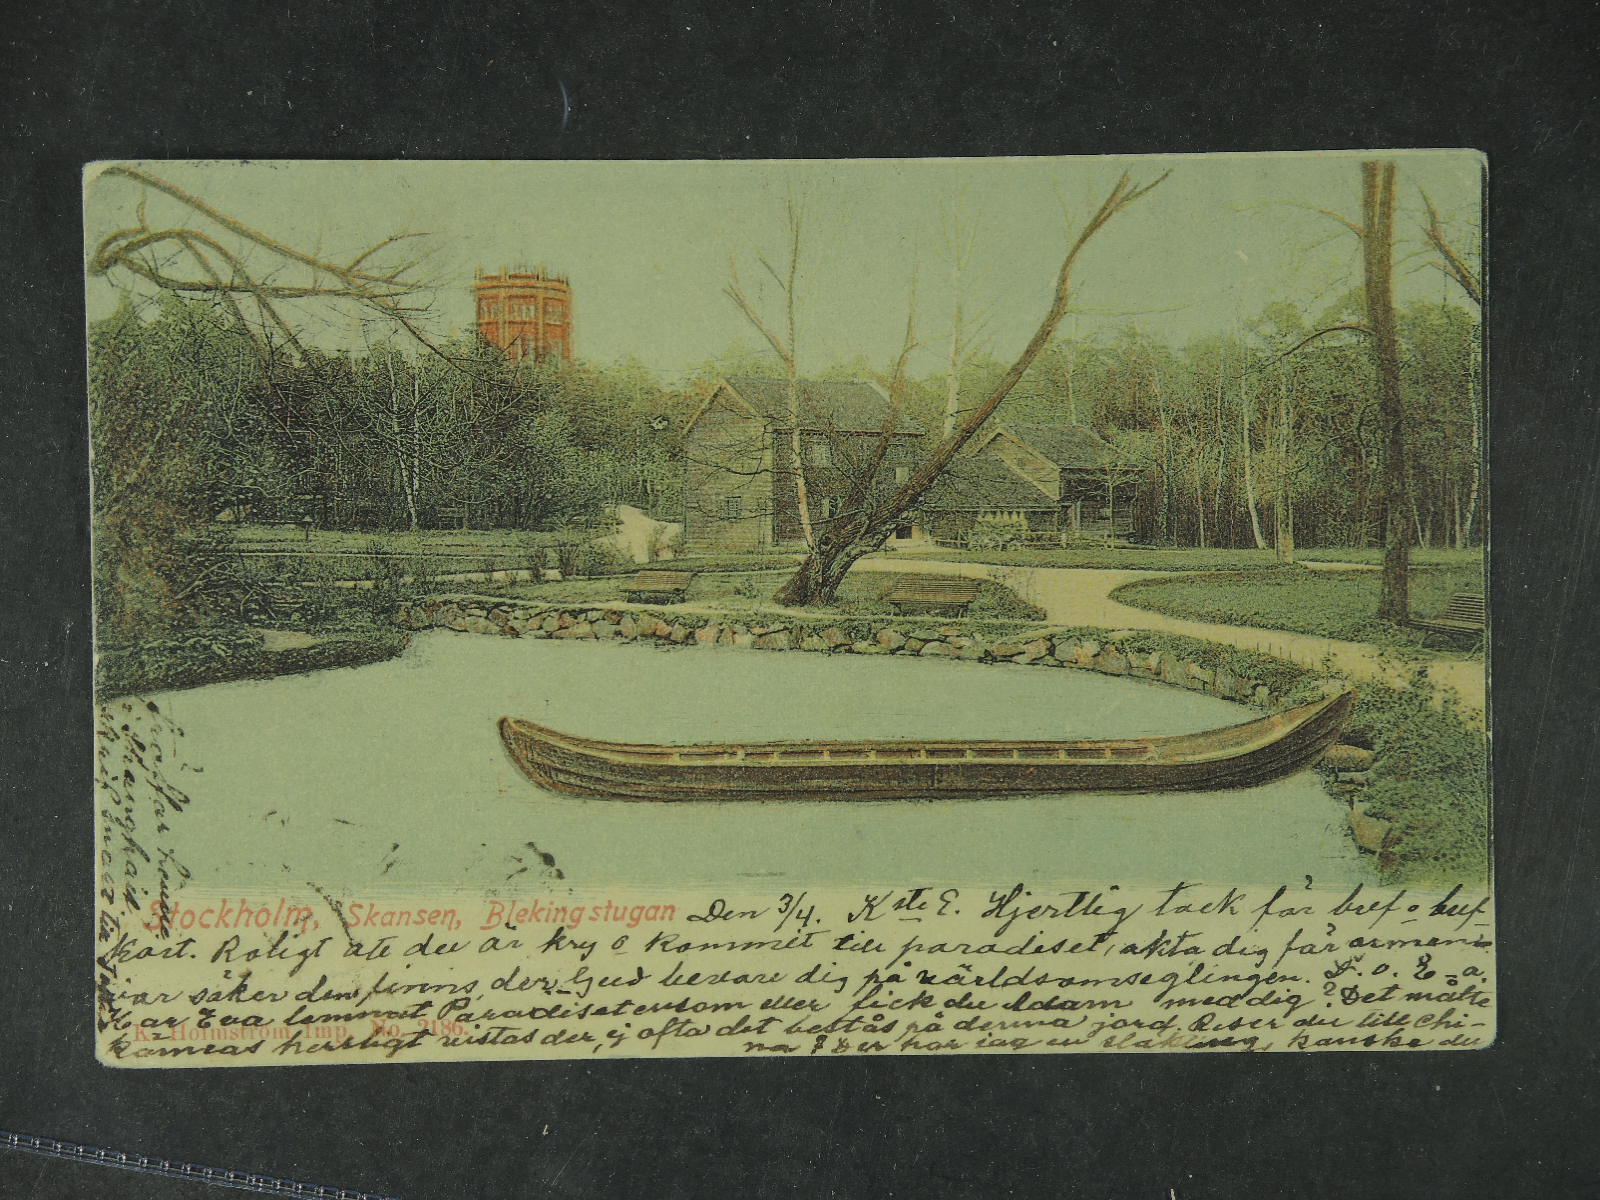 Stockholm, Skansen, Blekingstugan
Den 3/4. Kste E. Hjertlig tack för bref o bref-
kort. Roligt att du är kry o kommit till paradiset, akta dig för ormen
var säker den finns der, Gud bevare dig på världsomseglingen.
Har Eva lemnat Paradiset ensom eller fick du Adam med dig? Det måtte
kännas herrligt vistas der, ej ofta det bestås på denna jord. Reser du till Chi-
na? Der har jag en släkting, kanske du
träffar henne
i Shanghai.
K. Holmström Imp. No. 2186.